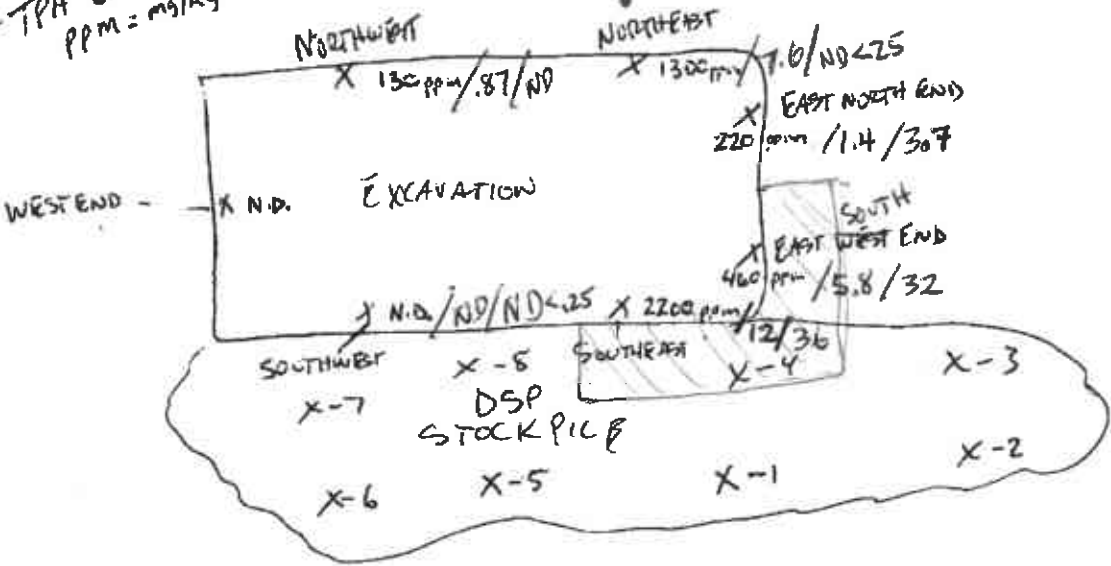 TPH
ppm = mg/kg
NORTHWEST
X 130 ppm/.87/ND
NORTHEAST
X 1300 ppm/7.6/ND<25
X EAST NORTH END
220 ppm /1.4/3.7
WEST END - X N.D.
EXCAVATION
SOUTH
X EAST WEST END
460 ppm /5.8/32
X N.D./ND/ND<.25
X 2200 ppm/12/36
SOUTHWEST
SOUTHEAST
X-8
X-4
X-3
X-7
DSP
STOCKPILE
X-2
X-6
X-5
X-1